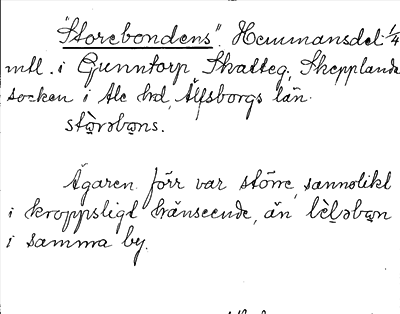 "Storebondens". Hemmansdel 1/4
mtl. i Gunntorp, Skatteg., Skepplanda
socken i Ale hd, Älfsborgs län.
stòrəbɷns.
Ägaren förr var större, sannolikt
i kroppsligt hänseende, än lèḷəbɷn
i samma by.